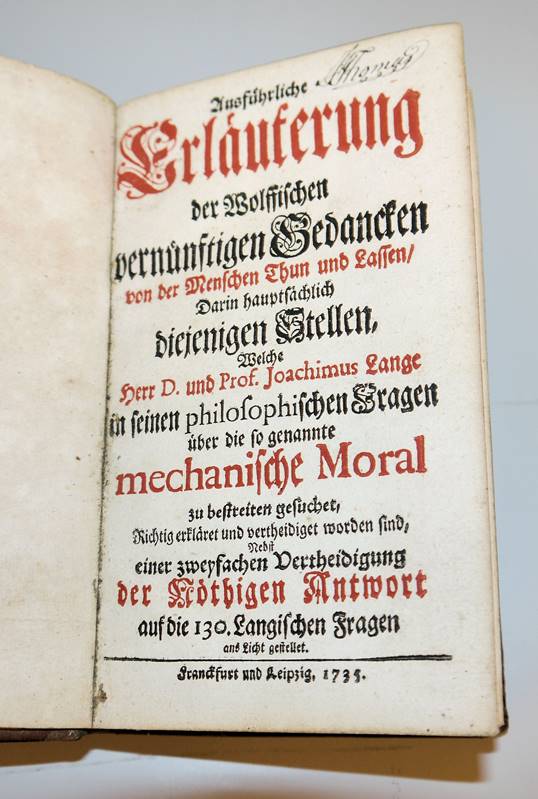 Thomas
Ausführliche
Erläuterung
der Wolffischen
vernünftigen Gedancken
von der Menschen Thun und Lassen/
Darin hauptsächlich
diejenigen Stellen,
Welche
Herr D. und Prof. Joachimus Lange
in seinen philosophischen Fragen
über die so genannte
mechanische Moral
zu bestreiten gesuchet,
Richtig erkläret und vertheidiget worden sind,
Nebst
einer zweyfachen Vertheidigung
der Nöthigen Antwort
auf die 130. Langischen Fragen
ans Licht gestellet.
Franckfurt und Leipzig, 1735.